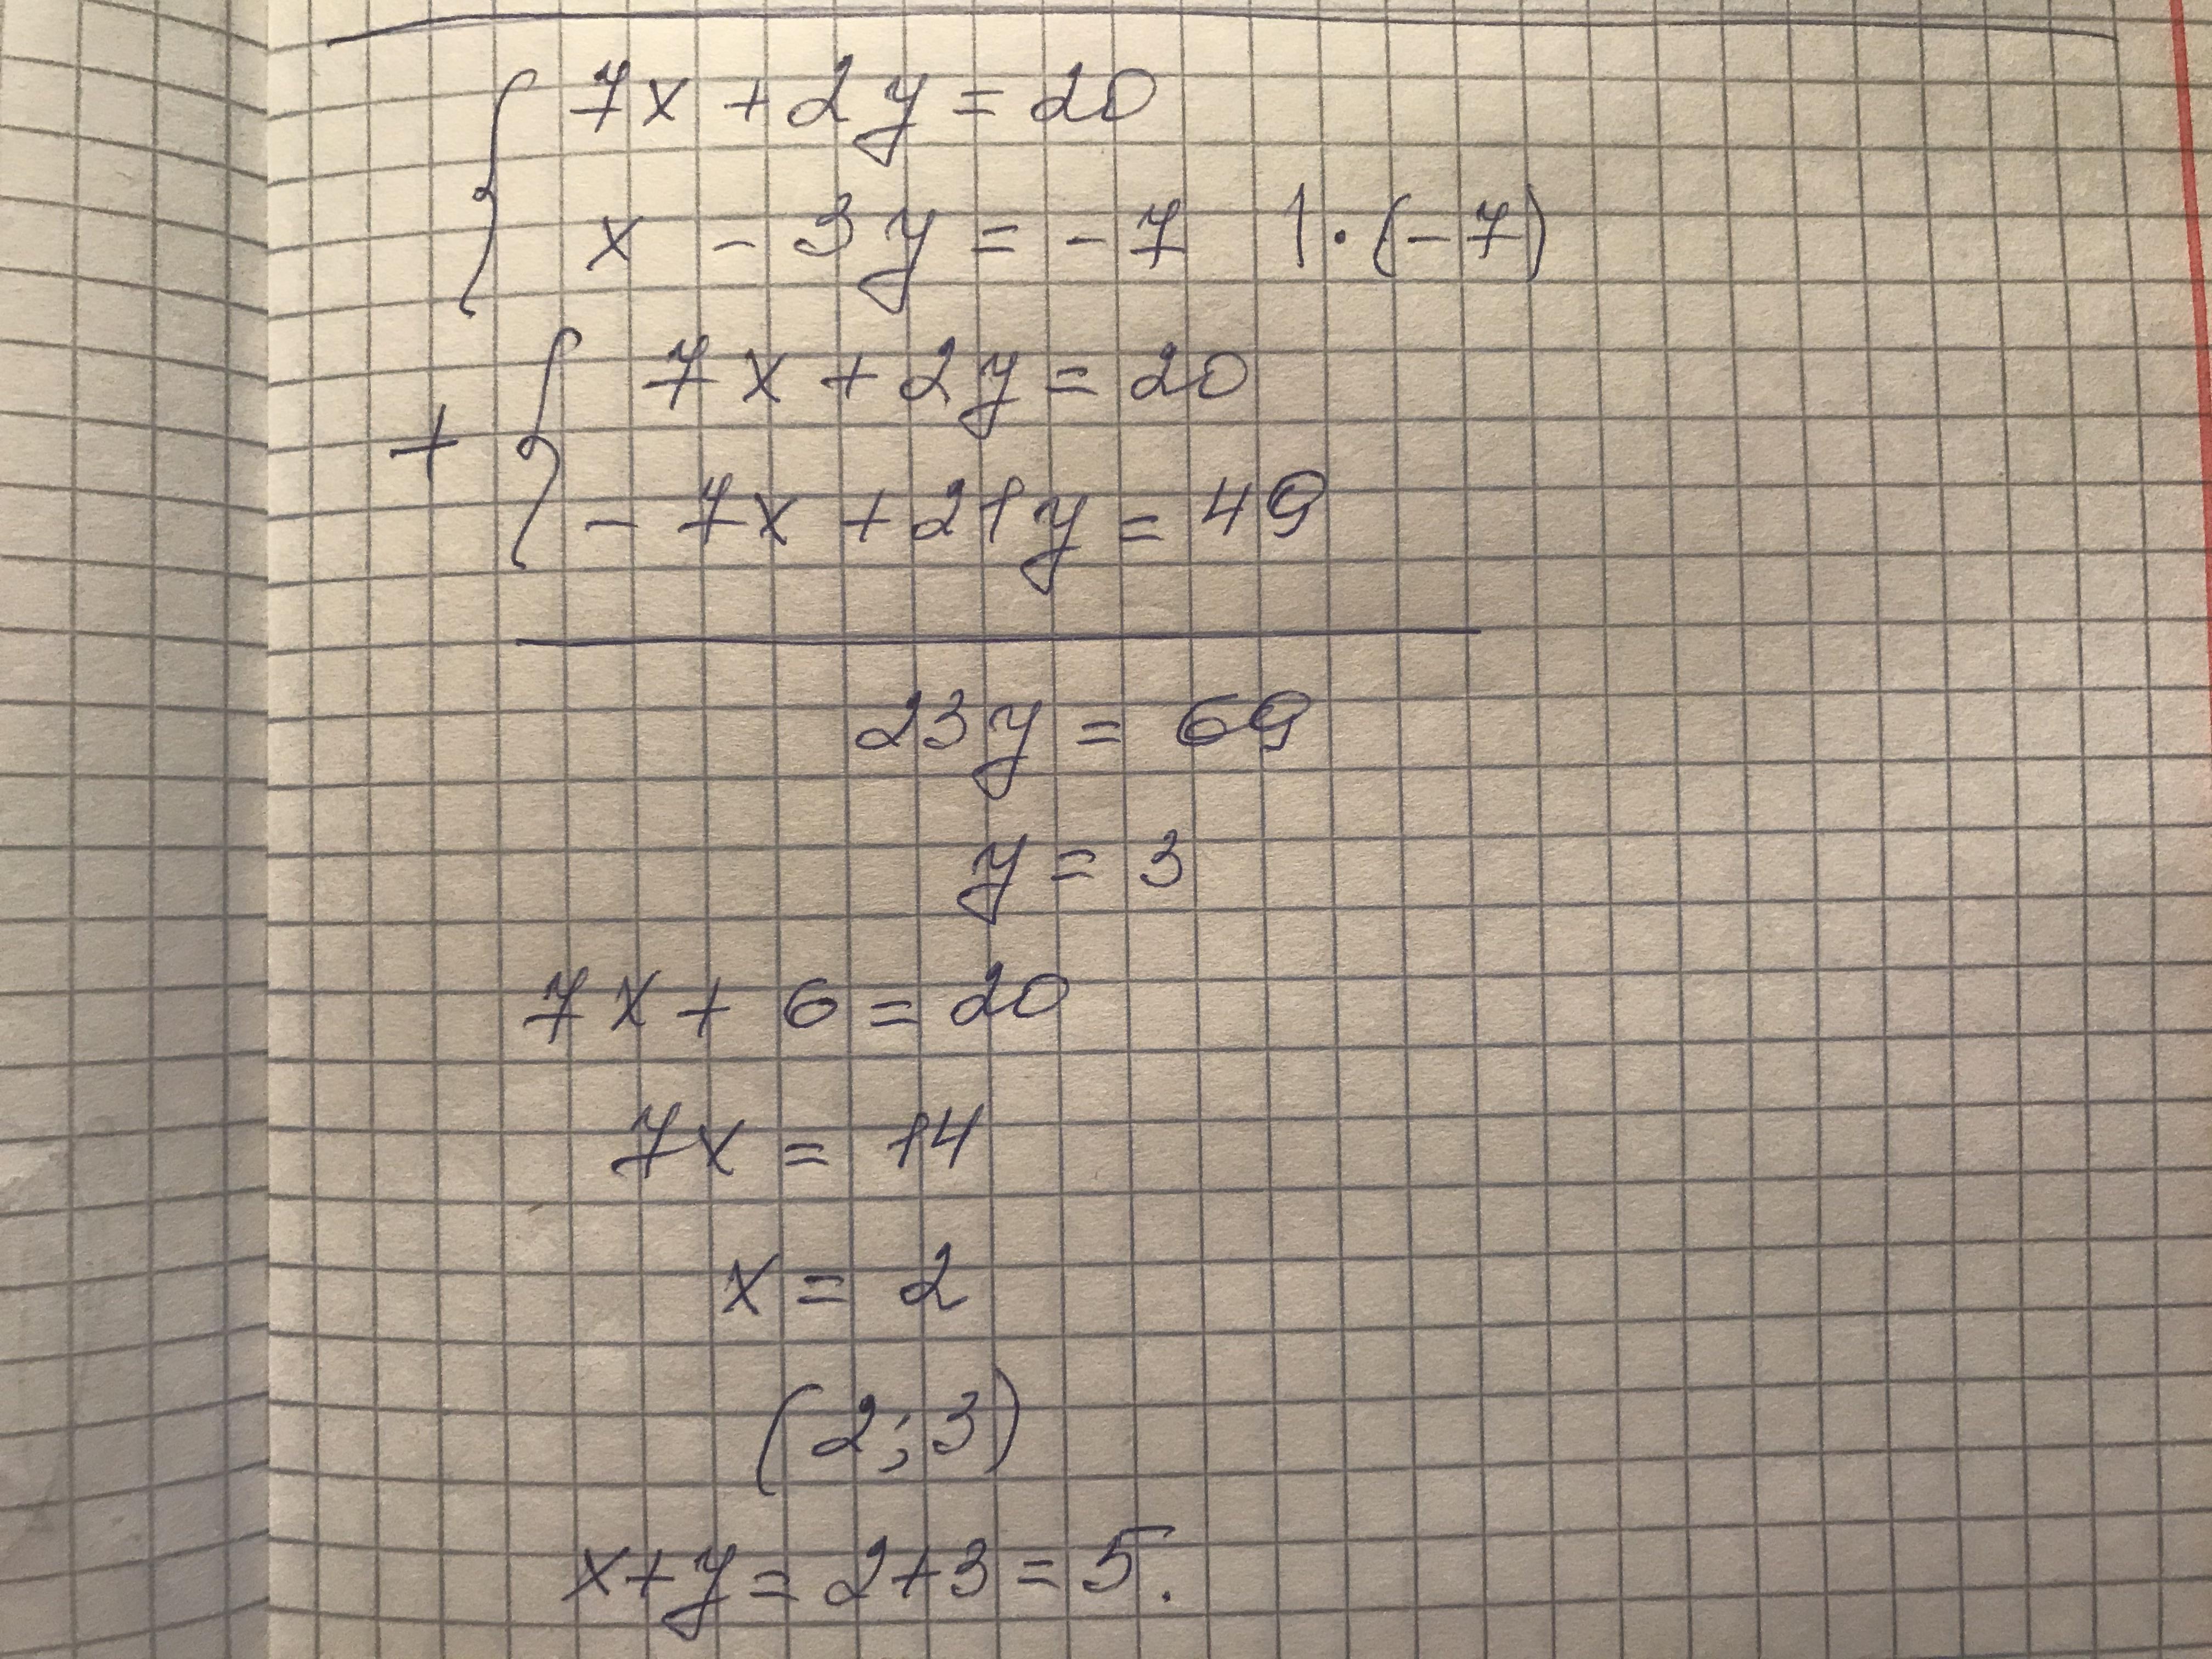 { 7x + 2y = 20
x - 3y = -7 | · (-7)
+ { 7x + 2y = 20
- 7x + 21y = 49
23y = 69
y = 3
7x + 6 = 20
7x = 14
x = 2
(2; 3)
x + y = 2 + 3 = 5.